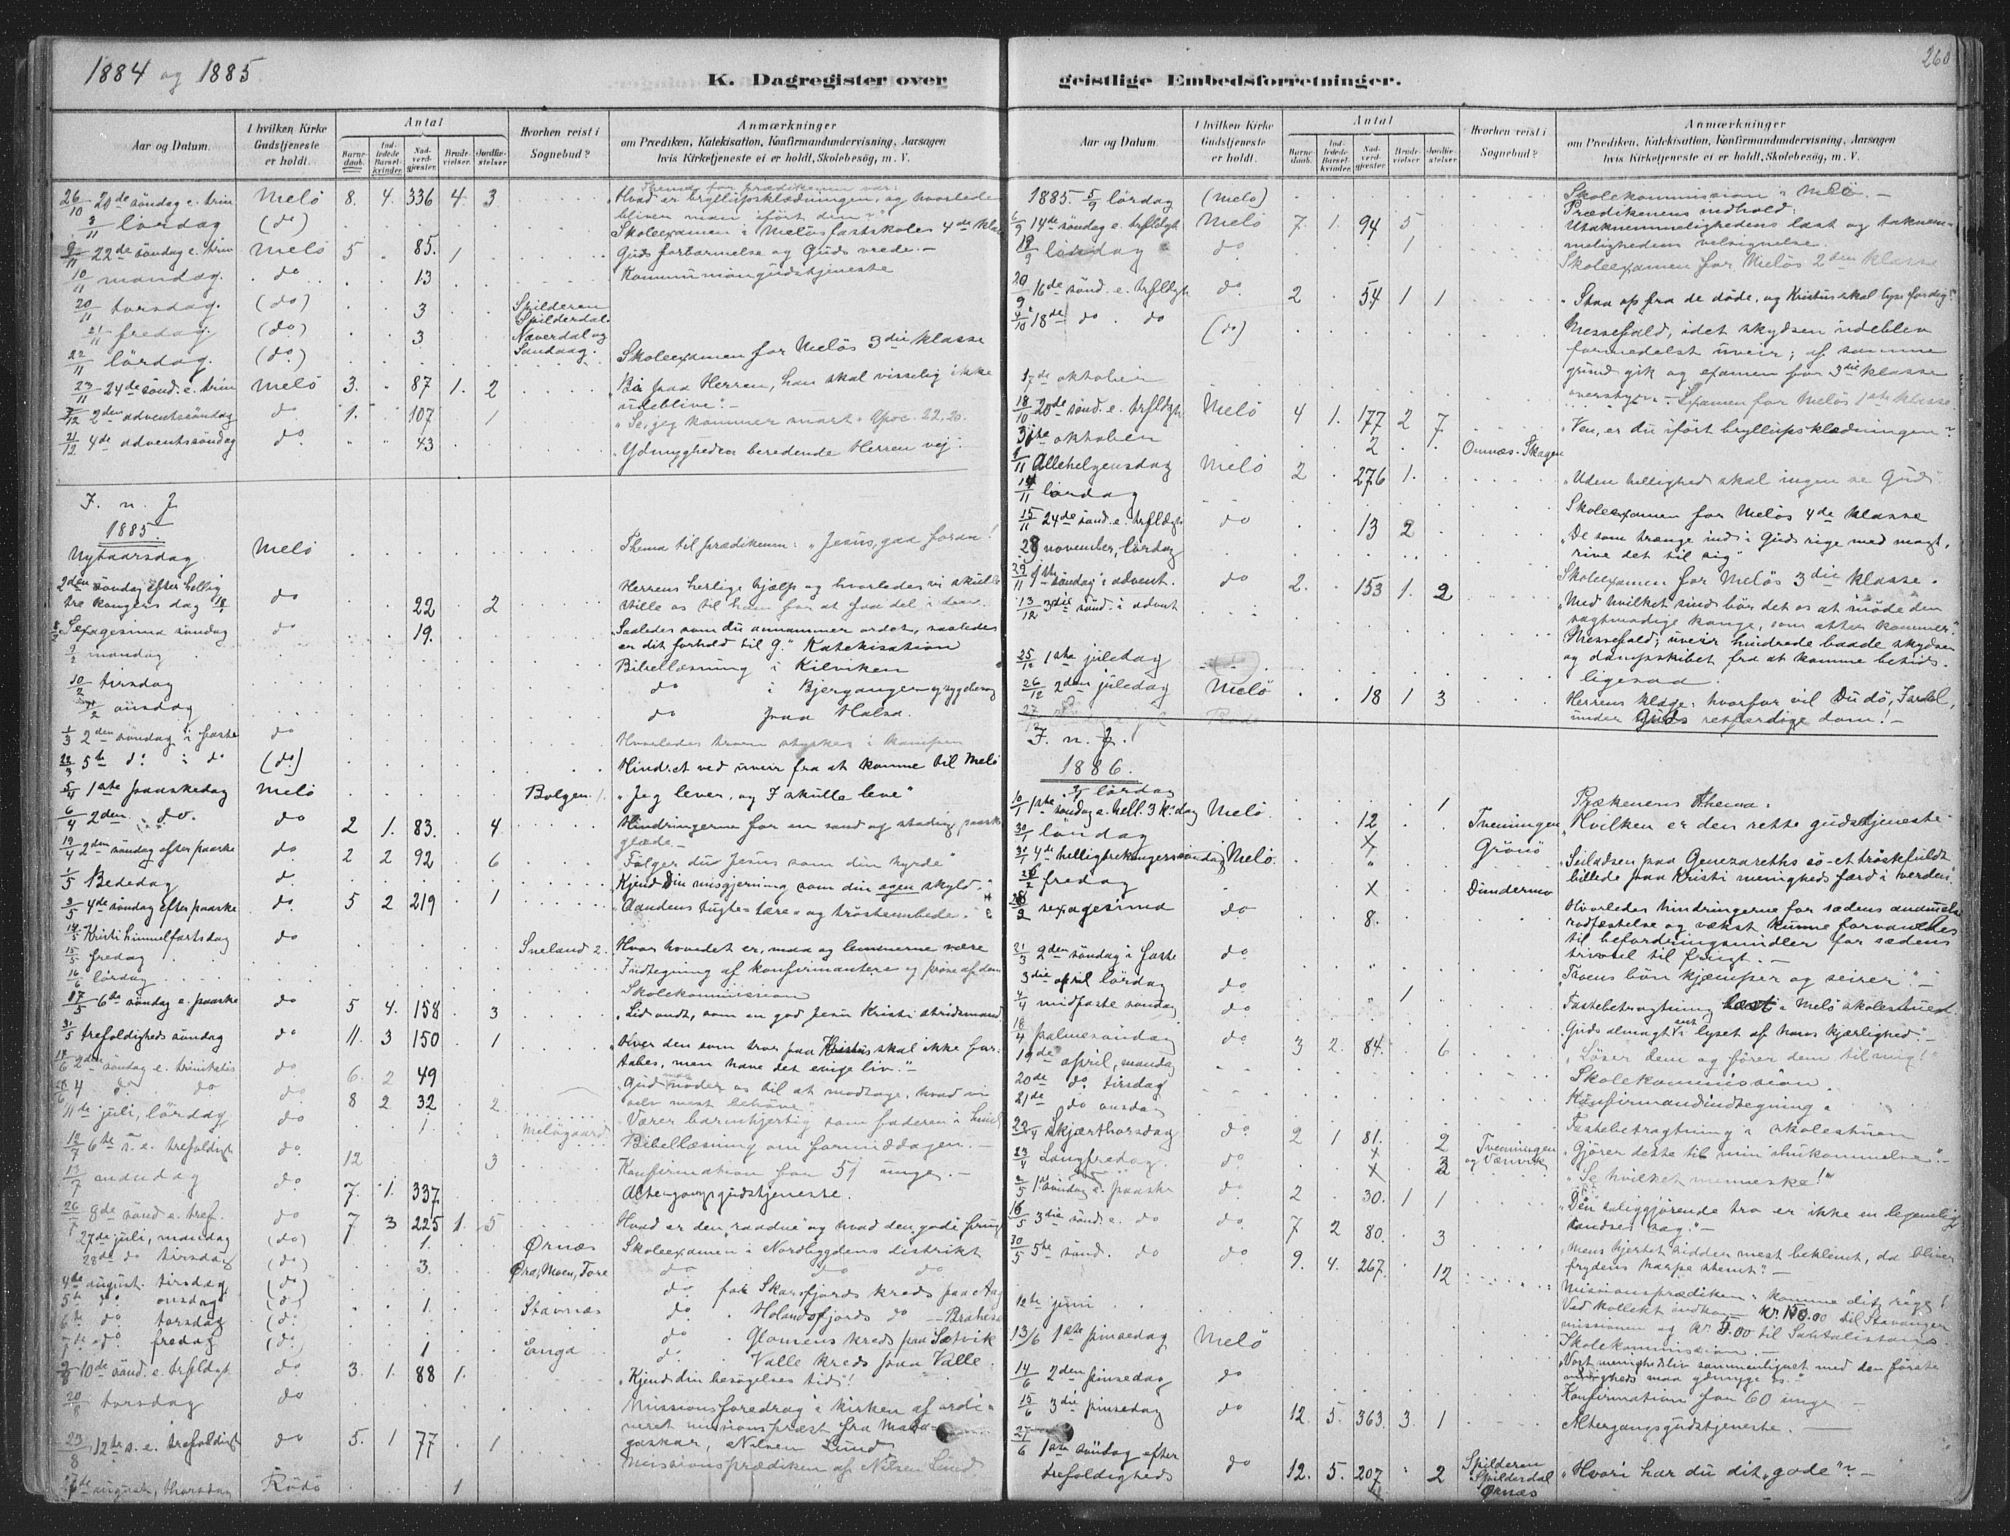 1884 og 1885
K. Dagregister over
Aar og Datum.
I hvilken Kirke Gudstjeneste er holdt.
Antal
Barnedaab.
Indledede Barselkvinder.
Nadverdgjæster.
Brudevielser.
Jordfæstelser.
Hvorhen reist i Sognebud?
Anmærkninger
om Prædiken, Katekisation, Konfirmandundervisning, Aarsagen
hvis Kirketjeneste ei er holdt, Skolebesøg, m. V.
Thema for prædikenen var:
26/10 20de söndag e. trin Melö 8. 4. 336 4. 3 Hvad er bryllupsklædningen, og hvorledes
bliver man iført den?
/11 lördag (do) Skoleexamen i Melös fastskoles 4de klas
9/11 22de söndag e. trin Melö 5 85. 1 Guds forbarmelse og Guds vrede. -
10/11 mandag. do 13 Kommuniongudstjeneste
20/11 torsdag. (do) 3 Spilderen
Spilderdal.
21/11 fredag. (do) 3 Næverdal og
Sandaag.
22/11 lördag. (do) Skoleexamen for Melös 3die klasse
23/11 24de sönd. e. trin Melö 3. 87 1. 2 Bi paa Herren, han skal visselig ikke
udeblive". -
7/12 2den adventssöndag do 1. 107 1 "Se, jeg kommer snart" Apoc. 22,20.
21/12 4de adventssöndag do 43 Ydmygheden beredende Herren vej.
I. n. J.
1885.
Nytaarsdag Melö Thema til prædikenen: "Jesus, gaa foran!
2den söndag efter hellig
tre kongers dag 18 do 22 2 Herrens herlige hjælp og hvorledes vi skulle
stille os til ham for at faa del i den.
8/2 Sexagesima söndag do 19. Saaledes som du annammer ordet, saaledes
er dit forhold til G." Katekisation
9/2 mandag Bibellæsning i Kilviken
10/2 tirsdag do i Bjerganger og sygebesög
11/2 onsdag do paa Halsa.
1/3 2den söndag i faste do Hvorledes troen styrkes i kampen
22/3 5te do i do (do) Hindret ved uveir fra at komme til Melö
5/4 1ste paaskedag Melö Bolgen 1. "Jeg lever, og I skulle leve"
6/4 2den do. do 2 1. 83. 4. Hindringerne for en sand og stadig paaske
glæde. -
19/4 2den söndag efter paaske do. 2 2 92 6 "Følger du Jesus som din hyrde"
1/5 Bededag d. Kjend Din misgjerning som din egen skyld.
3/5 4de söndag efter paaske do. 5 2 219 1 "Aandens tugtes lære" og trösteembede.
14/5 Kristi himmelfartsdag do Sneland 2. Hvor hovedet er, maa og lemmerne være
15/5 fredag Indtegning af konfirmantere og prøve af dem
16/5 lördag Skolekommission
17/5 6te söndag e. paaske do 5 4. 158 3 "Lid ondt, som en god Jesu Kristi stridsmand
31/5 trefoldigheds söndag do 11. 3 150 1 "Hver den som tror paa Kristus skal ikke for-
tabes, men have det evige liv."-
2den söndag e. trinitatis do 6. 2 49 "Gud nøder os til at modtage, hvad vi
selv mest behöve
4 do do do 8 2 32 2
11te juli, lördag do 1 Meløgaard Værer barmhjertig som faderen i himl
12/7 6te s. e. trefoldigt do. 12 3 Bibellæsning om formiddagen. -
Konfirmation for 51 unge. -
13/7 mandag do. 7. 1. 337 Altergangsgudstjeneste.
26/7 8de sönd e. tref. do 7 3 225 1. 5 Hvad er den "raadne" og hvad den gode frugt
27de juli, mandag (do) 1. Ørnæs Skoleexamen i Nordbygdens distrikt
28de do tirsdag (do) 3. Øra, Moen, Fore do. do do
4de august. tirsdag (do) do. for Skarsfjords kreds paa Aag
5te do. onsdag (do) 1. Stavnæs do. " Holandsfjords do - Brahese
6te do torsdag (do) do " Glomens kreds paa Sætvik
7de do fredag (do) 1 Enga do. Valle kreds paa Valle.
9/8 10de sönd. e. trfldgt. do 3. 1. 88 1. "Kjend din besögelses tid"!
20/8 torsdag do Missionsforedrag i kirken af ordi-
neret missionspræst fra Mada-
gaskar, Nilsen Lund
23/8 12te s. e. trefoldigt do 5. 1 77 1 Missionsprædiken af Nilsen Lund
27de august, thorsdag Rödö 1
260
geistlige Embedsforretninger.
Aar og Datum.
I hvilken Kirke Gudstjeneste er holdt.
Antal
Barnedaab.
Indledede Barselkvinder.
Nadverdgjæster.
Brudevielser.
Jordfæstelser.
Hvorhen reist i Sognebud?
Anmærkninger
om Prædiken, Katekisation, Konfirmandundervisning, Aarsagen
hvis Kirketjeneste ei er holdt, Skolebesøg, m. V.
1885. 5/9 lördag (Melö) Skolekommission i Melö. -
Prædikenens indhold:
6/9 14de söndag e. trfldgt. Melö 7. 1. 94 5 Utaknemmelighedens last og taknem-
melighedens velsignelse.
19/9 lördag do. 1 Skoleexamen for Melös 2den klasse
20/9 16de sönd. e. trflldgt do. 2 54 1 1 "Staa op fra de döde, og Kristus skal lyse for dig!"
4/10 18de do. do (do) Messefald, idet skydsen udeblev
formedelst uveir; af samme
grund gik og examen for 3die klasse
17de oktober overstyr. - Examen for Melös 1ste klasse.
18/10 20de sönd. e. trfldgh. Melö 4 1. 177 2 7 "Ven, er du iført bryllupsklædningen"?
31te oktober 2 Ornæs. Skagen
1/11 Allehelgensdag Melö 2 276 1. "Uden hellighed skal ingen se Gud"
14/11 lördag Skoleexamen for Melös 4de klasse
15/11 24de sönd. e. trfldgt do 13 2 "De som trænge ind i Guds rige med magt,
rive det til sig"
28 november, lördag Skoleexamen for Melös 3die klasse.
29/11 1ste söndag i advent. do 2. 153 1. 2 "Med hvilket sind bör det os at møde den
sagtmodige konge, som atter kommer".
13/12 3die sönd. i advent Messefald; uveir hindrede baade skydsen
og dampskibet fra at komme betids.
25/12 1ste juledag ligesaa.
26/12 2den juledag Melö 18 1 3 Herrens klage: hvorfor vil Du dö, Israel,
under Guds retfærdige dom! -
27
I. n. J.
1886.
9/1 lördag
10/1 1ste söndag e. hell. 3 k. dag Melö. 12 1 Tveningen Prækenens thema:
"Hvilken er den rette gudstjeneste"
30/1 löndag X Grönö
31/1 4de helligtrekongerssöndag Melö. " Seiladsen paa Genezareths sö - et tröstefuldt
billede paa Kristi menigheds færd i verden.
/2 fredag X Dundermo
28/2 sexagesima do 8. Hvorledes hindringerne for sædens andvielse
rodfæstelse og vækst kunne forvandles
til befordringsmidler for sædens
trivsel til frugt. -
21/3 2den söndag i faste do "Troens bön kjæmper og seirer". -
3die april lördag do 1
4/4 midfaste söndag do Fastebetragtning læst i Melö skolestuen
18/4 palmesöndag do 3 2 84. 6 Guds almagt set i lyset af hans kjærlighed".
19de april, mandag "Löser dem og förer dem til mig!"
20de do. tirsdag Skolekommission.
21de do onsdag Konfirmandindtegning.
22/4 skjærthorsdag do 2 1 81. 2 Fastebetragtning i skolestuen
23/4 Langfredag. do. X 3 Tveningen
og Værnvik "Gjörer dette til min ihukommelse". -
2/5 1. söndag e. paaske do. 2 30. 1 1 "Se hvilket menneske!"
16/5 3die sönd. e. do do. 7 2 80. 3 "Den saliggjörende tro er ikke en legemlig
sandses sag."-
30/5 5te sönd. do do 9. 4. 267 12 "Mens hjertet sidder mest beklemt, da bliver
frydens harpe stemt". -
12te juni Missionsprædiken: komme dit rige!
Ved kollekt indkom Kr. 150.00 til Stavanger
missionen og Kr 5.00 til Santalistans
13/6 1ste pinsedag Melö Skolekommission. -
14/6 2den pinsedag do "Vort menighedsliv sammenlignet med den förste
menigheds maa ydmyge os."
15/6 3die pinsedag do 12. 5. 363 3 1 Konfirmation for 60 unge -
Altergangsgudstjeneste.
27/6 1ste söndag efter
trefoldigheds do 12. 5. 207 2 Spilderen
Spilderdal
Ørnæs "Hvori har du dit "gode"? -
X